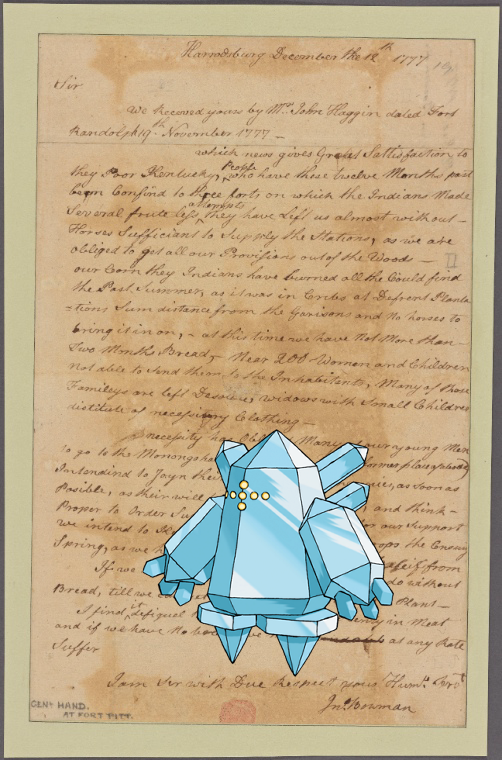 Harrodsburg December the 12th 1777
Sir
We Receved yours by Mr. John Haggin dated Fort
Randolph 19th November 1777 —
which news gives Great Sattisfaction to
they Poor Kentucky People who have these twelve Months past
been Confind to three forts on which the Indians Made
Several fruteless attempts they have Left us almost without
Horses Sufficient to Supply the Stations, as we are
obliged to get all our Provisions out of the Woods —
our Corn they Indians have burned all the Could find
the Past Summer, as it was in Cribs at Defrent Planta
=tions Sum distance from the Garisons and No horses to
bring it in on, — at this time we have not More than
Two Months Bread, — Near 200 Women and Children
not able to Send them to the Inhabitents, Many of those
Familys are left Desolate, widows with Small Children
distitute of necessiry Clothing —
necessity has Many our young Men
to go to the Monongaha
Intendind to Joyn their as Soon as
Posible, as their will and think
Proper to Order Su for our Support
we intend to the Enemy
Spring, as we h from
If we do without
Bread, till we Plants —
I find it difiquel in Meat
and if we have No as any Rate
Suffer
I am Sir with Due Respect your Humb. Servt
Jno. Bowman
GENL HAND.
AT FORT PITT.